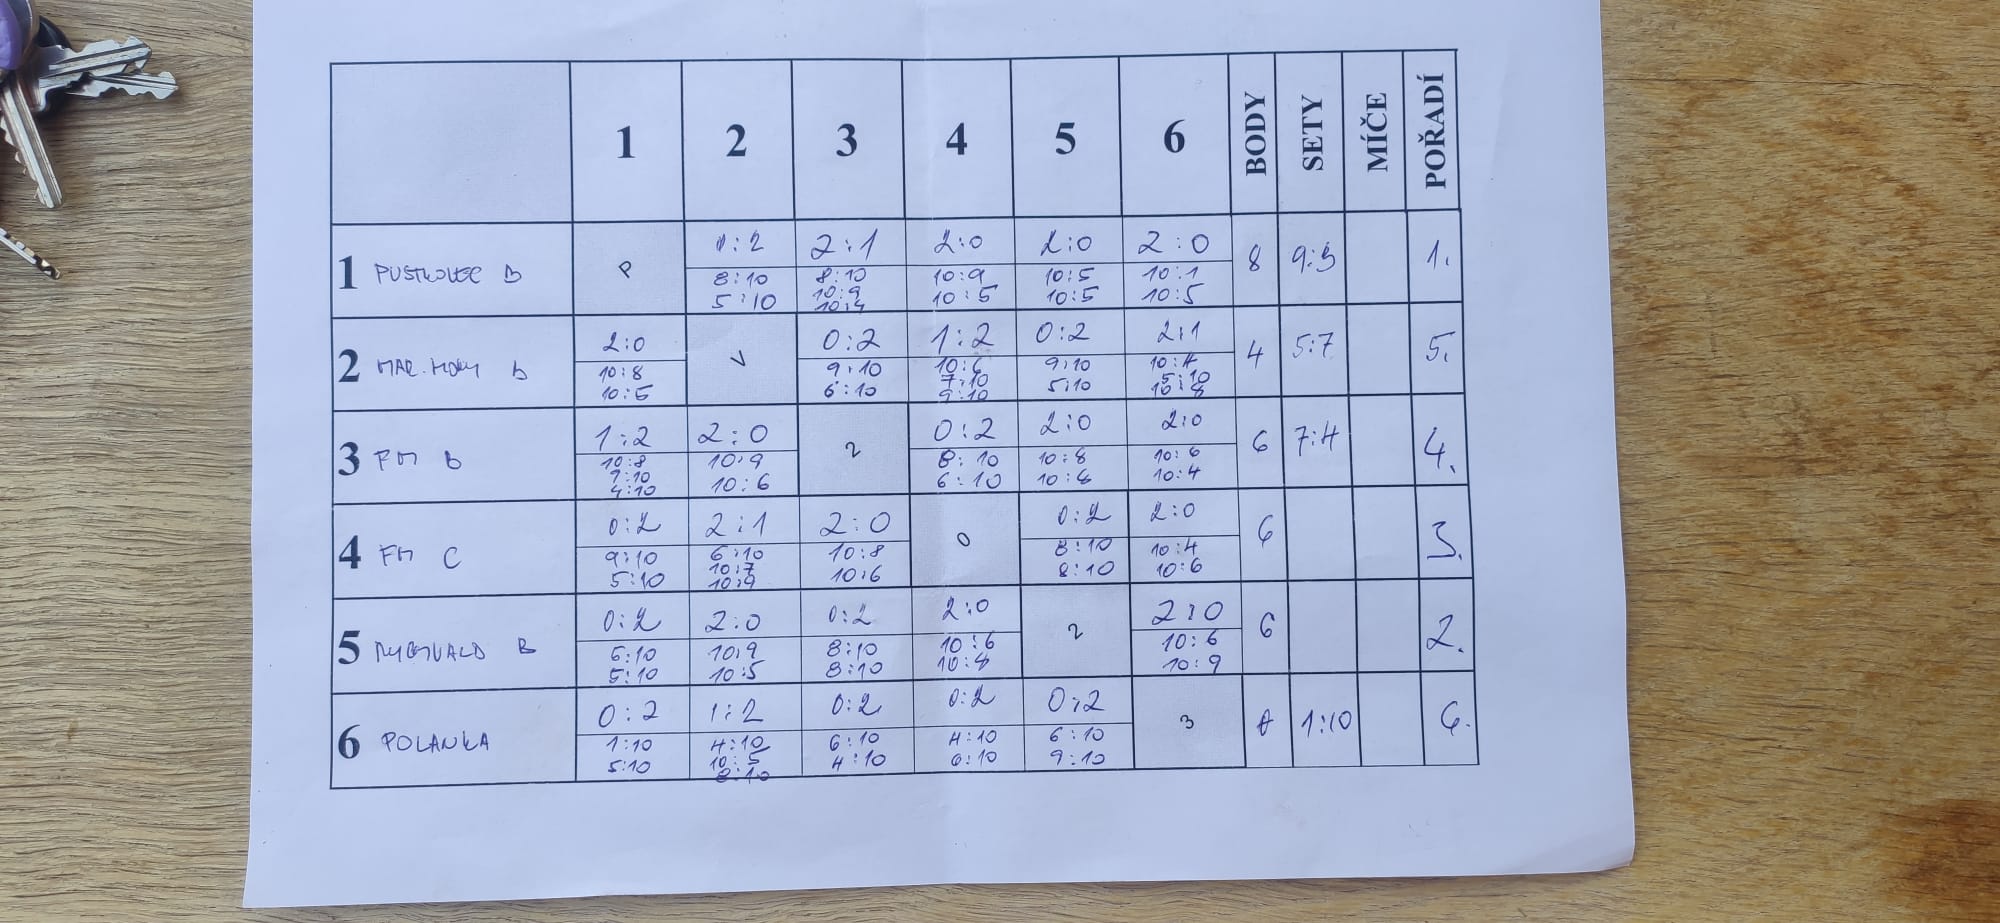 1 2 3 4 5 6 BODY SETY MÍČE POŘADÍ
1 PUSTKOVEC B P 0:2 2:1 2:0 2:0 2:0 8 1.
8:10 8:10 10:9 10:5 10:1
5:10 10:9 10:5 10:5 10:5
10:4
2 MAR. HORY B 2:0 V 0:2 1:2 0:2 2:1 4 5:7 5.
10:8 9:10 10:6 9:10 10:4
10:5 6:10 7:10 5:10 5:10
9:10 10:8
3 FM B 1:2 2:0 2 0:2 2:0 2:0 6 7:4 4.
10:8 10:9 8:10 10:8 10:6
9:10 10:6 6:10 10:8 10:4
4:10
4 FM C 0:2 2:1 2:0 0 0:2 2:0 6 3.
9:10 6:10 10:8 8:10 10:4
5:10 10:7 10:6 8:10 10:6
10:9
5 RYCHVALD B 0:2 2:0 0:2 2:0 2 2:0 6 2.
5:10 10:9 8:10 10:6
5:10 10:5 8:10 10:8 10:9
6 POLANKA 0:2 1:2 0:2 0:2 0:2 3 1:10 6.
1:10 4:10 6:10 4:10 6:10
5:10 10:5 4:10 6:10 9:10
8:10